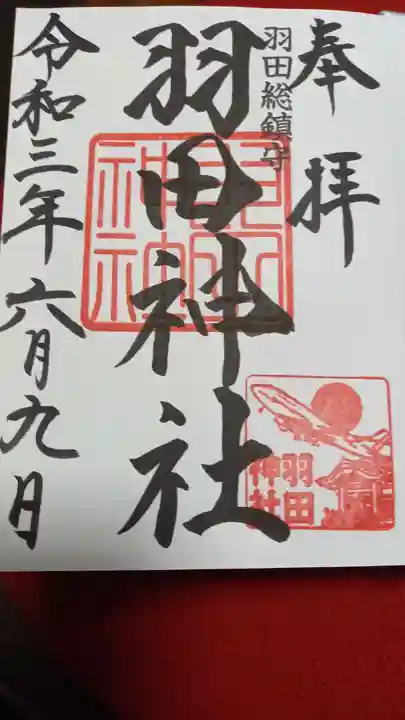 奉拝
羽田総鎮守
羽田神社
羽田
神社
令和三年六月九日